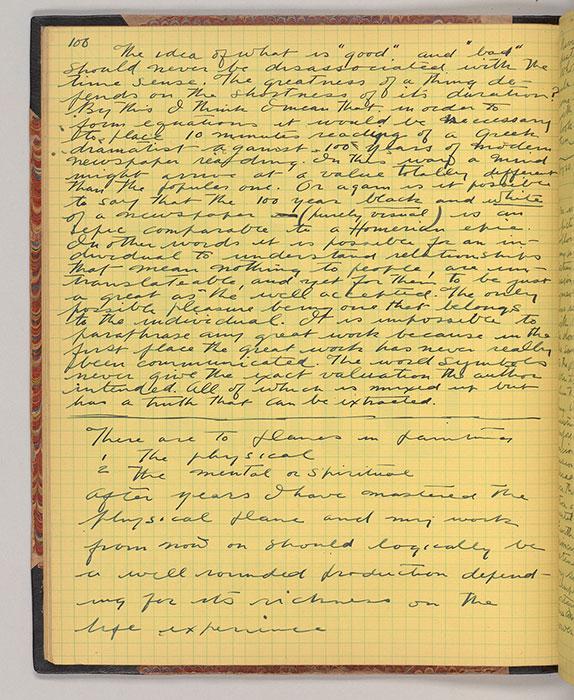 106
The idea of what is "good" and "bad"
should never be disassociated with the
time sense. The greatness of a thing de-
pends on the shortness of its duration?
By this I think I mean that in order to
form equations it would be necessary
to place 10 minutes reading of a Greek
dramatist against 100 years of modern
newspaper reading. In this way a mind
might arrive at a value totally different
than the popular one. Or again is it possible
to say that the 100 year black and white
of a newspaper — (purely visual) is an
epic comparable to a Homerian epic.
In other words it is possible for an in-
dividual to understand relationships
that mean nothing to people, are un-
translateable, and yet for them to be just
as great as the well accepted. The only
possible pleasure being one that belongs
to the individual. It is impossible to
paraphrase any great work because in the
first place the great work has never really
been communicated. The word symbols
never give the exact valuation the author
intended. All of which is mixed up but
has a truth that can be extracted.
There are to planes in painting
1 The physical
2 The mental or spiritual
After years I have mastered the
physical plane and my work
from now on should logically be
a well rounded production depend-
ing for its richness on the
life experience